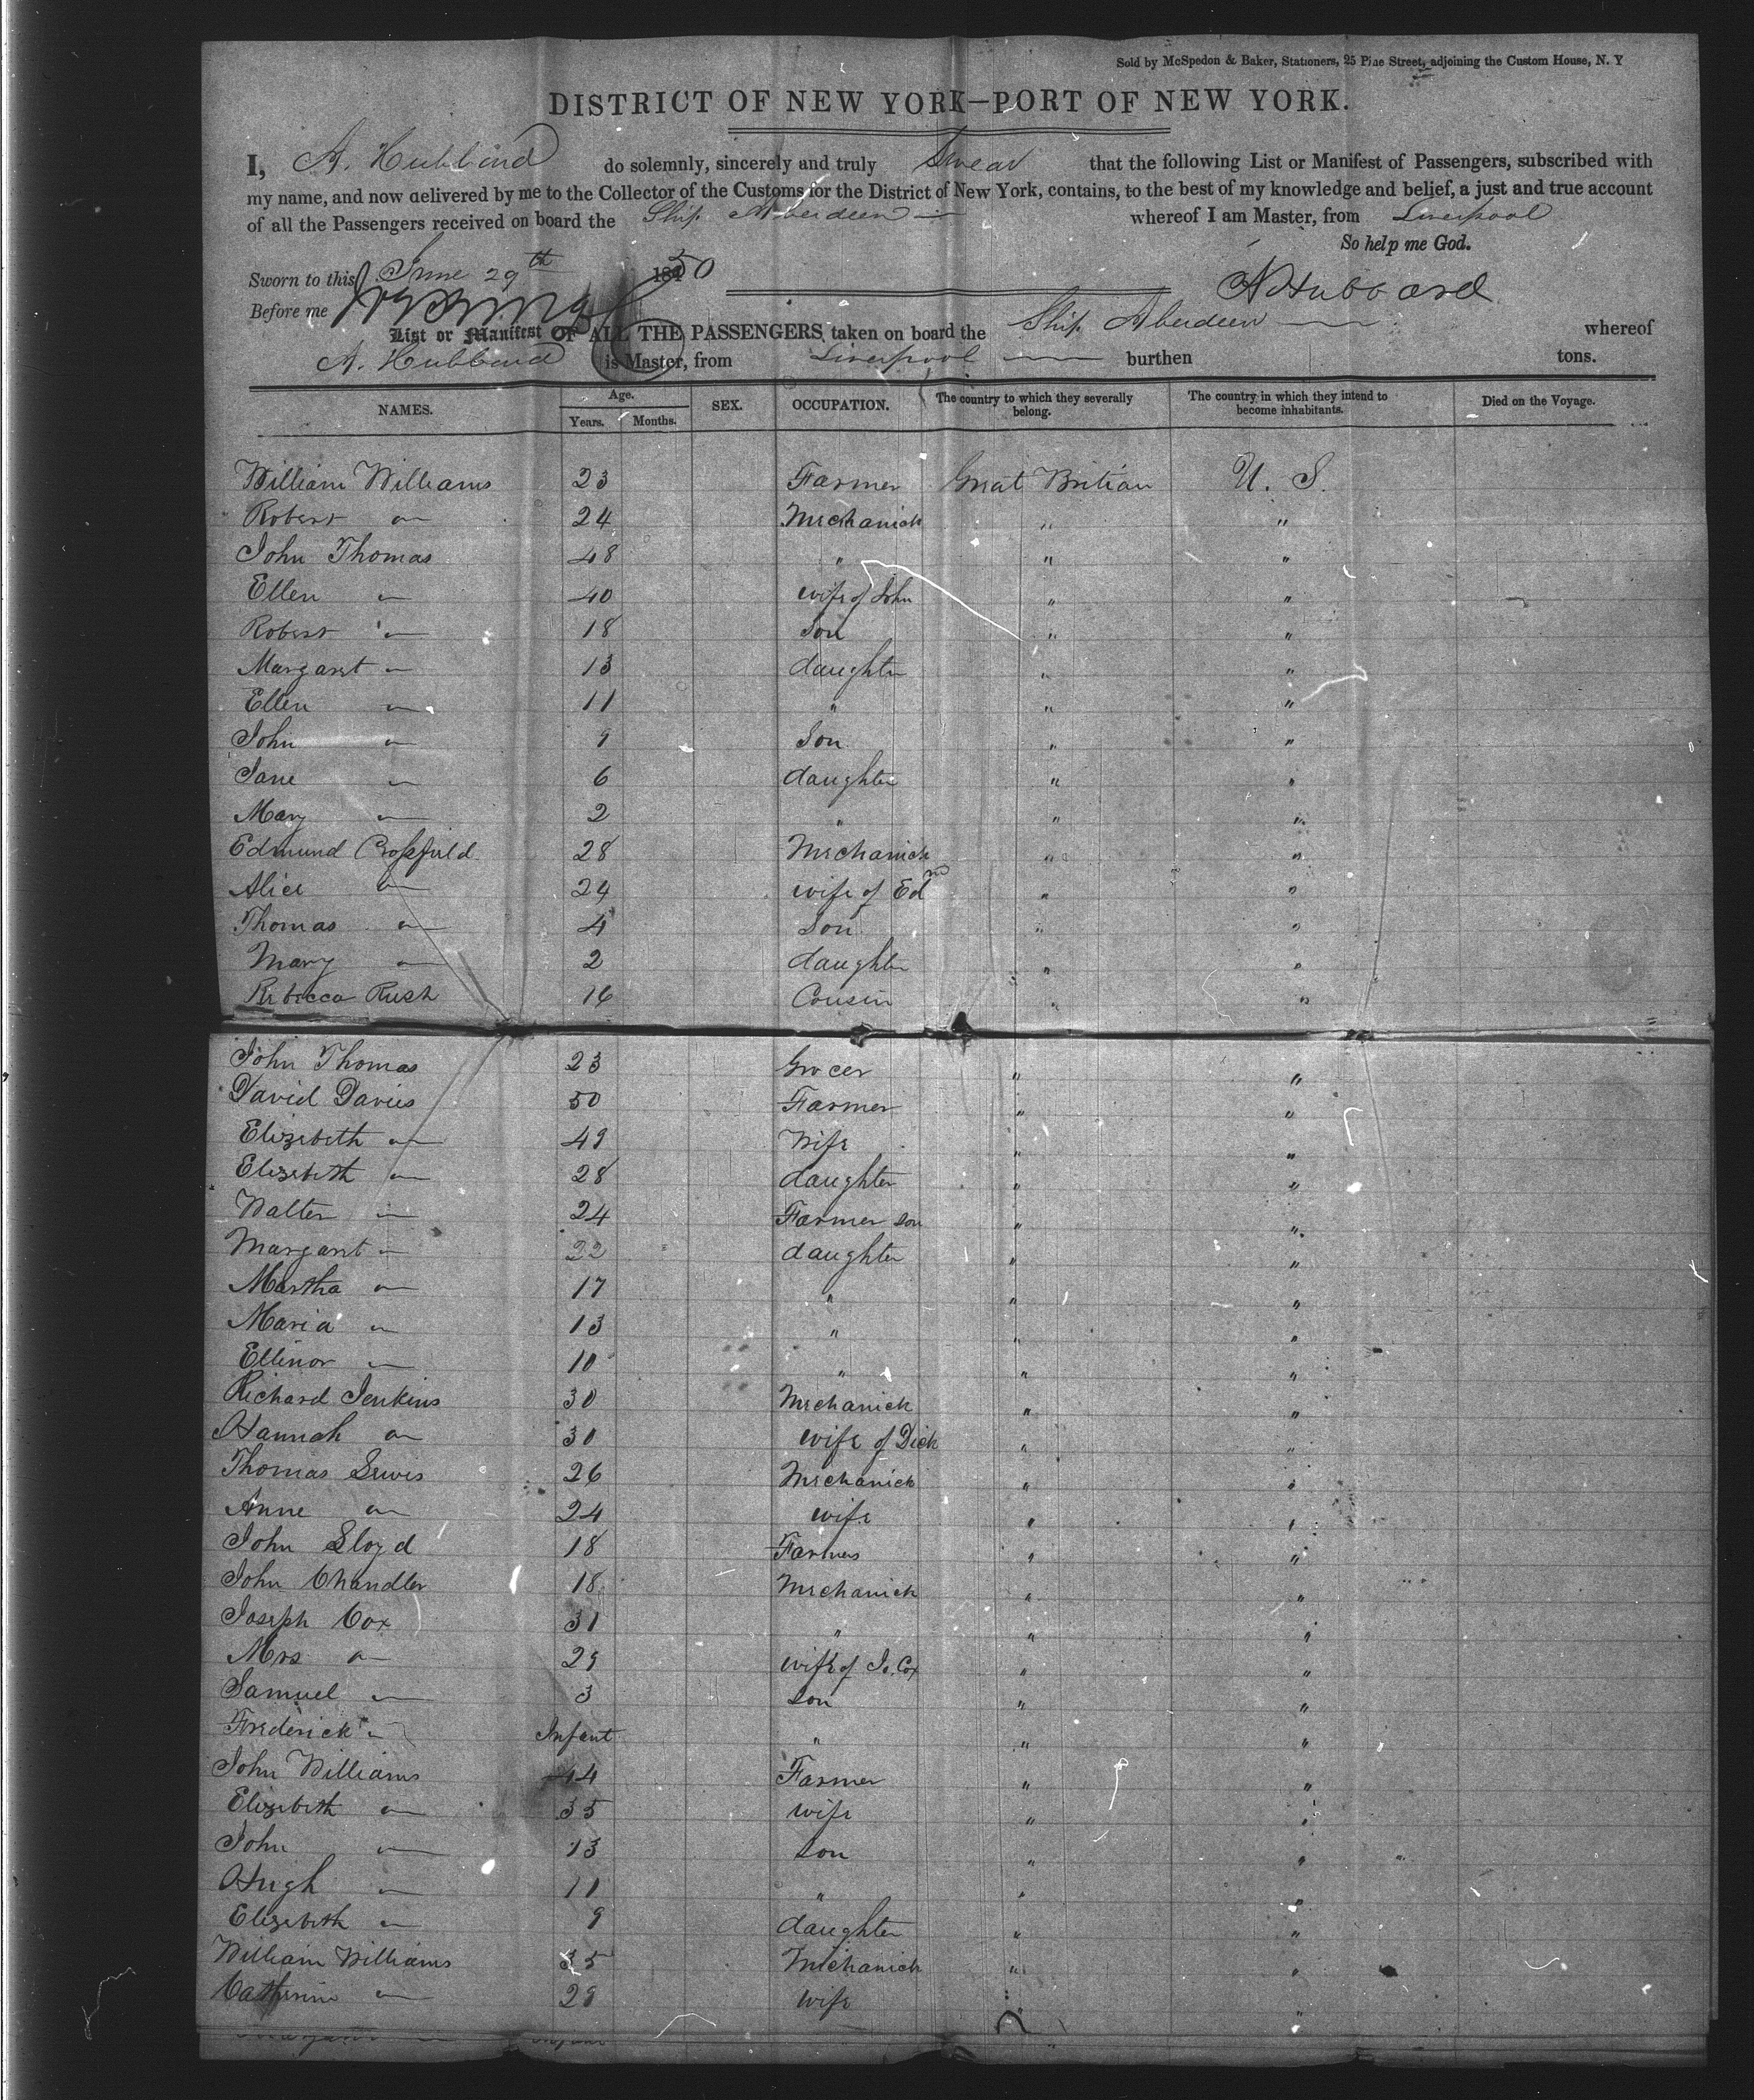 Sold by McSpedon & Baker, Stationers, 25 Pine Street, adjoining the Custom House, N. Y
DISTRICT OF NEW YORK—PORT OF NEW YORK.
I, A. Hubbard do solemnly, sincerely and truly Swear that the following List or Manifest of Passengers, subscribed with
my name, and now delivered by me to the Collector of the Customs for the District of New York, contains, to the best of my knowledge and belief, a just and true account
of all the Passengers received on board the Ship Aberdeen whereof I am Master, from Liverpool
So help me God.
Sworn to this June 29th 1850
A Hubbard
Before me
List or Manifest OF ALL THE PASSENGERS taken on board the Ship Aberdeen whereof
A. Hubbard is Master, from Liverpool burthen tons.
NAMES. Age. Years. Months. SEX. OCCUPATION. The country to which they severally belong. The country in which they intend to become inhabitants. Died on the Voyage.
William Williams 23 Farmer Great Britian U. S.
Robert " 24 Mechanick " "
John Thomas 48 " " "
Ellen " 40 wife of John " "
Robert " 18 Son " "
Margaret " 13 daughter " "
Ellen " 11 " " "
John " 9 Son " "
Jane " 6 daughter " "
Mary " 2 " " "
Edmund Crossfield 28 Mechanick " "
Alice " 24 wife of Edm " "
Thomas " 4 Son " "
Mary " 2 daughter " "
Rebecca Rush 16 Cousin " "
John Thomas 23 Grocer " "
David Davies 50 Farmer " "
Elizebeth " 49 Wife " "
Elizebeth " 28 daughter " "
Walter " 24 Farmer son " "
Margaret " 22 daughter " "
Martha " 17 " " "
Maria " 13 " " "
Ellinor " 10 " " "
Richard Jenkins 30 Mechanick " "
Hannah " 30 wife of Dick " "
Thomas Lewis 26 Mechanick " "
Anne " 24 wife " "
John Lloyd 18 Farmer " "
John Chandler 18 Mechanick " "
Joseph Cox 31 " " "
Mrs " 29 wife of Jo. Cox " "
Samuel " 3 son " "
Frederick " Infant " " "
John Williams 44 Farmer " "
Elizebeth " 35 wife " "
John " 13 son " "
Hugh " 11 " " "
Elizebeth " 9 daughter " "
William Williams 35 Mechanick " "
Catherine " 29 wife " "